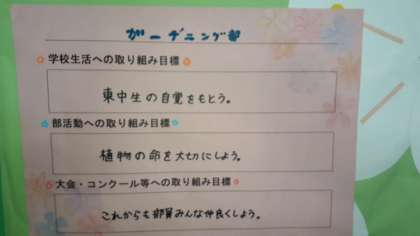 ガーデニング部
学校生活への取り組み目標
東中生の自覚をもとう。
部活動への取り組み目標
植物の命を大切にしよう。
大会・コンクール等への取り組み目標
これからも部員みんな仲良くしよう。